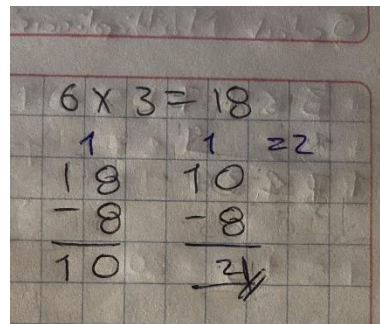 6 x 3 = 18
1 1 =2
18 10
-8 -8
10 2